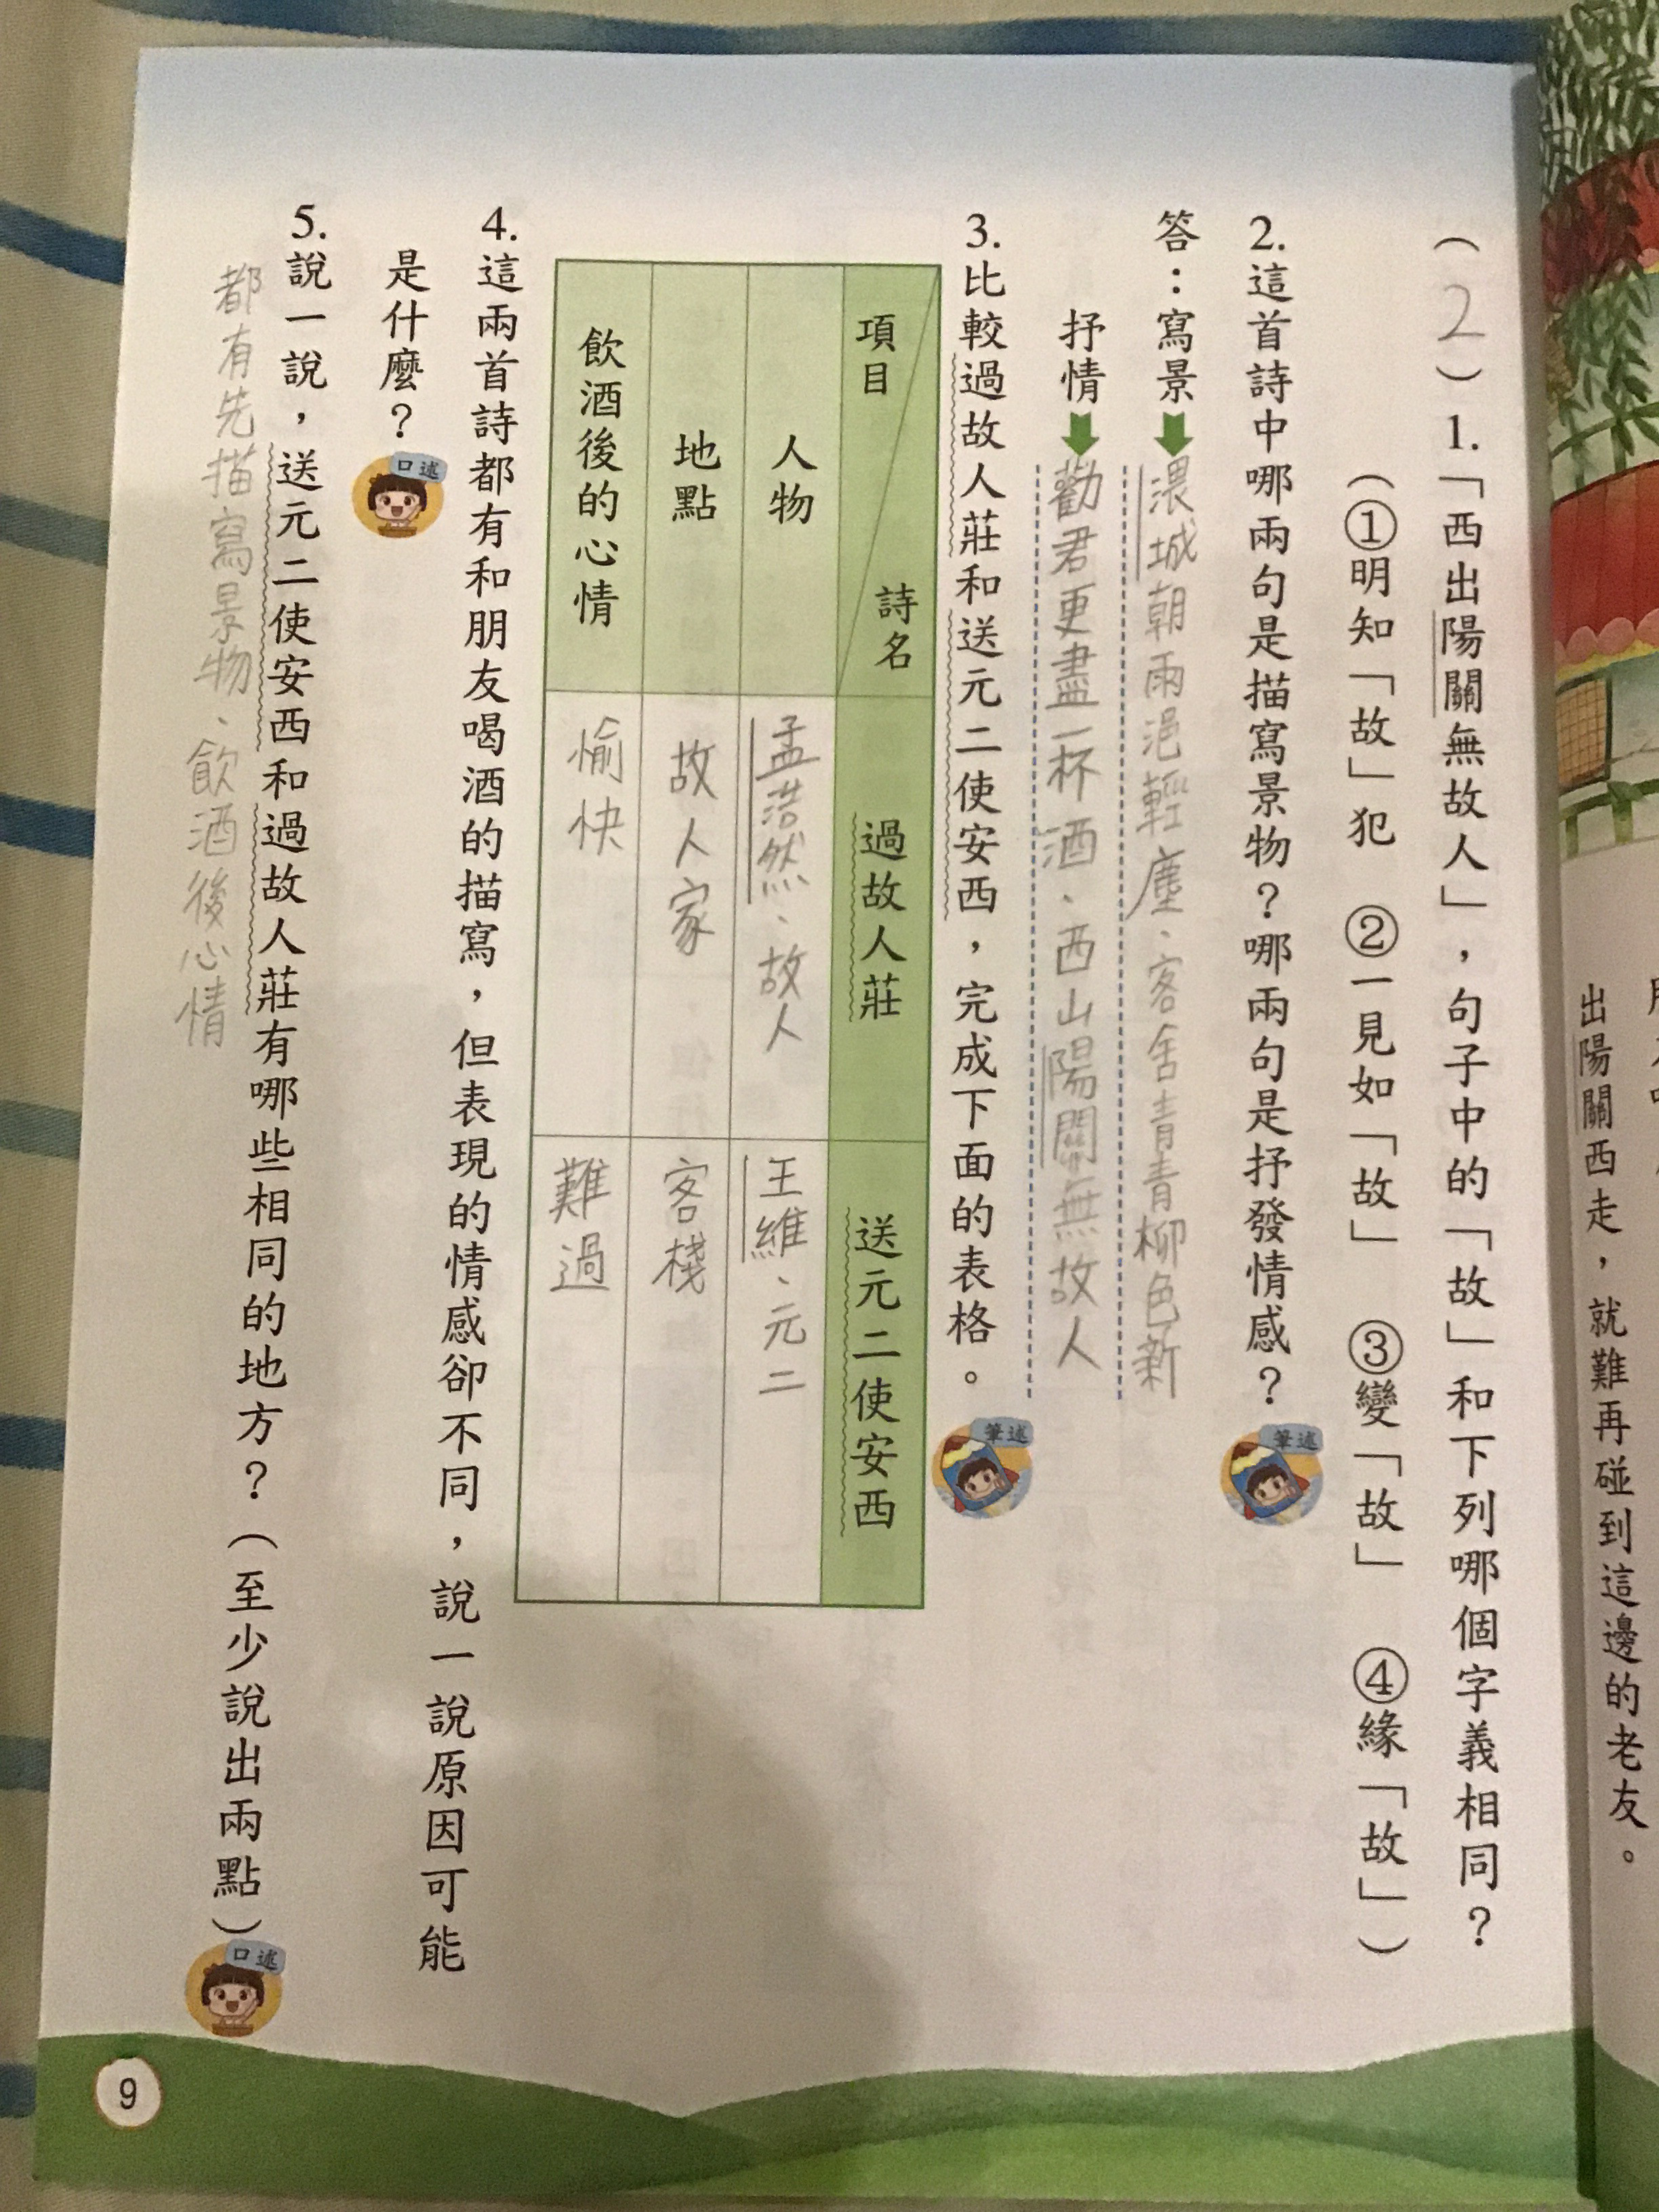 出陽關西走，就難再碰到這邊的老友。
（2）1.「西出陽關無故人」，句子中的「故」和下列哪個字義相同？
（①明知「故」犯　②一見如「故」　③變「故」　④緣「故」）
2.這首詩中哪兩句是描寫景物？哪兩句是抒發情感？
筆述
答：寫景 渭城朝雨浥輕塵、客舍青青柳色新
抒情 勸君更盡一杯酒、西山陽關無故人
3.比較過故人莊和送元二使安西，完成下面的表格。
筆述
項目 詩名 過故人莊 送元二使安西
人物 孟浩然、故人 王維、元二
地點 故人家 客棧
飲酒後的心情 愉快 難過
4.這兩首詩都有和朋友喝酒的描寫，但表現的情感卻不同，說一說原因可能
是什麼？
口述
5.說一說，送元二使安西和過故人莊有哪些相同的地方？（至少說出兩點）
口述
都有先描寫景物、飲酒後心情
9